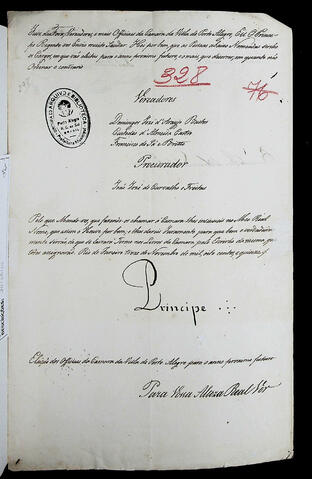 Juiz de Fora, Vereadores, e mais Officiaes da Camara da Villa de Porto Alegre, Eu O Princi-
pe Regente vos Envio muito Saudar. Hei por bem, que as Pessoas adiante Nomeadas sirvão
os Cargos, em que vão eleitos para o anno proximo futuro, e mais, que observar, em quanto não
Ordenar o contrario
328
76
Vereadores
Domingos José d'Araujo Bastos
Custodio d'Almeida Castro
Francisco de Sá e Britto
Procurador
José José de Carvalho e Freitas
Porto Alegre
Pelo que Mando vos, que fazendo os chamar á Camara lhes em Meu Real
Nome, que assim o Houve por bem, e lhes deis Juramento para que bem e verdadeira-
mente sirvão, de que se lavrará Termo nos Livros da Camara pelo Escrivão da mesma,
Rio de Janeiro treze de Novembro de mil, oito centos, e quinze
Principe
Eleição dos Officiaes da Camara da Villa de Porto Alegre para o anno proximo futuro
Para Vossa Alteza Real Ver